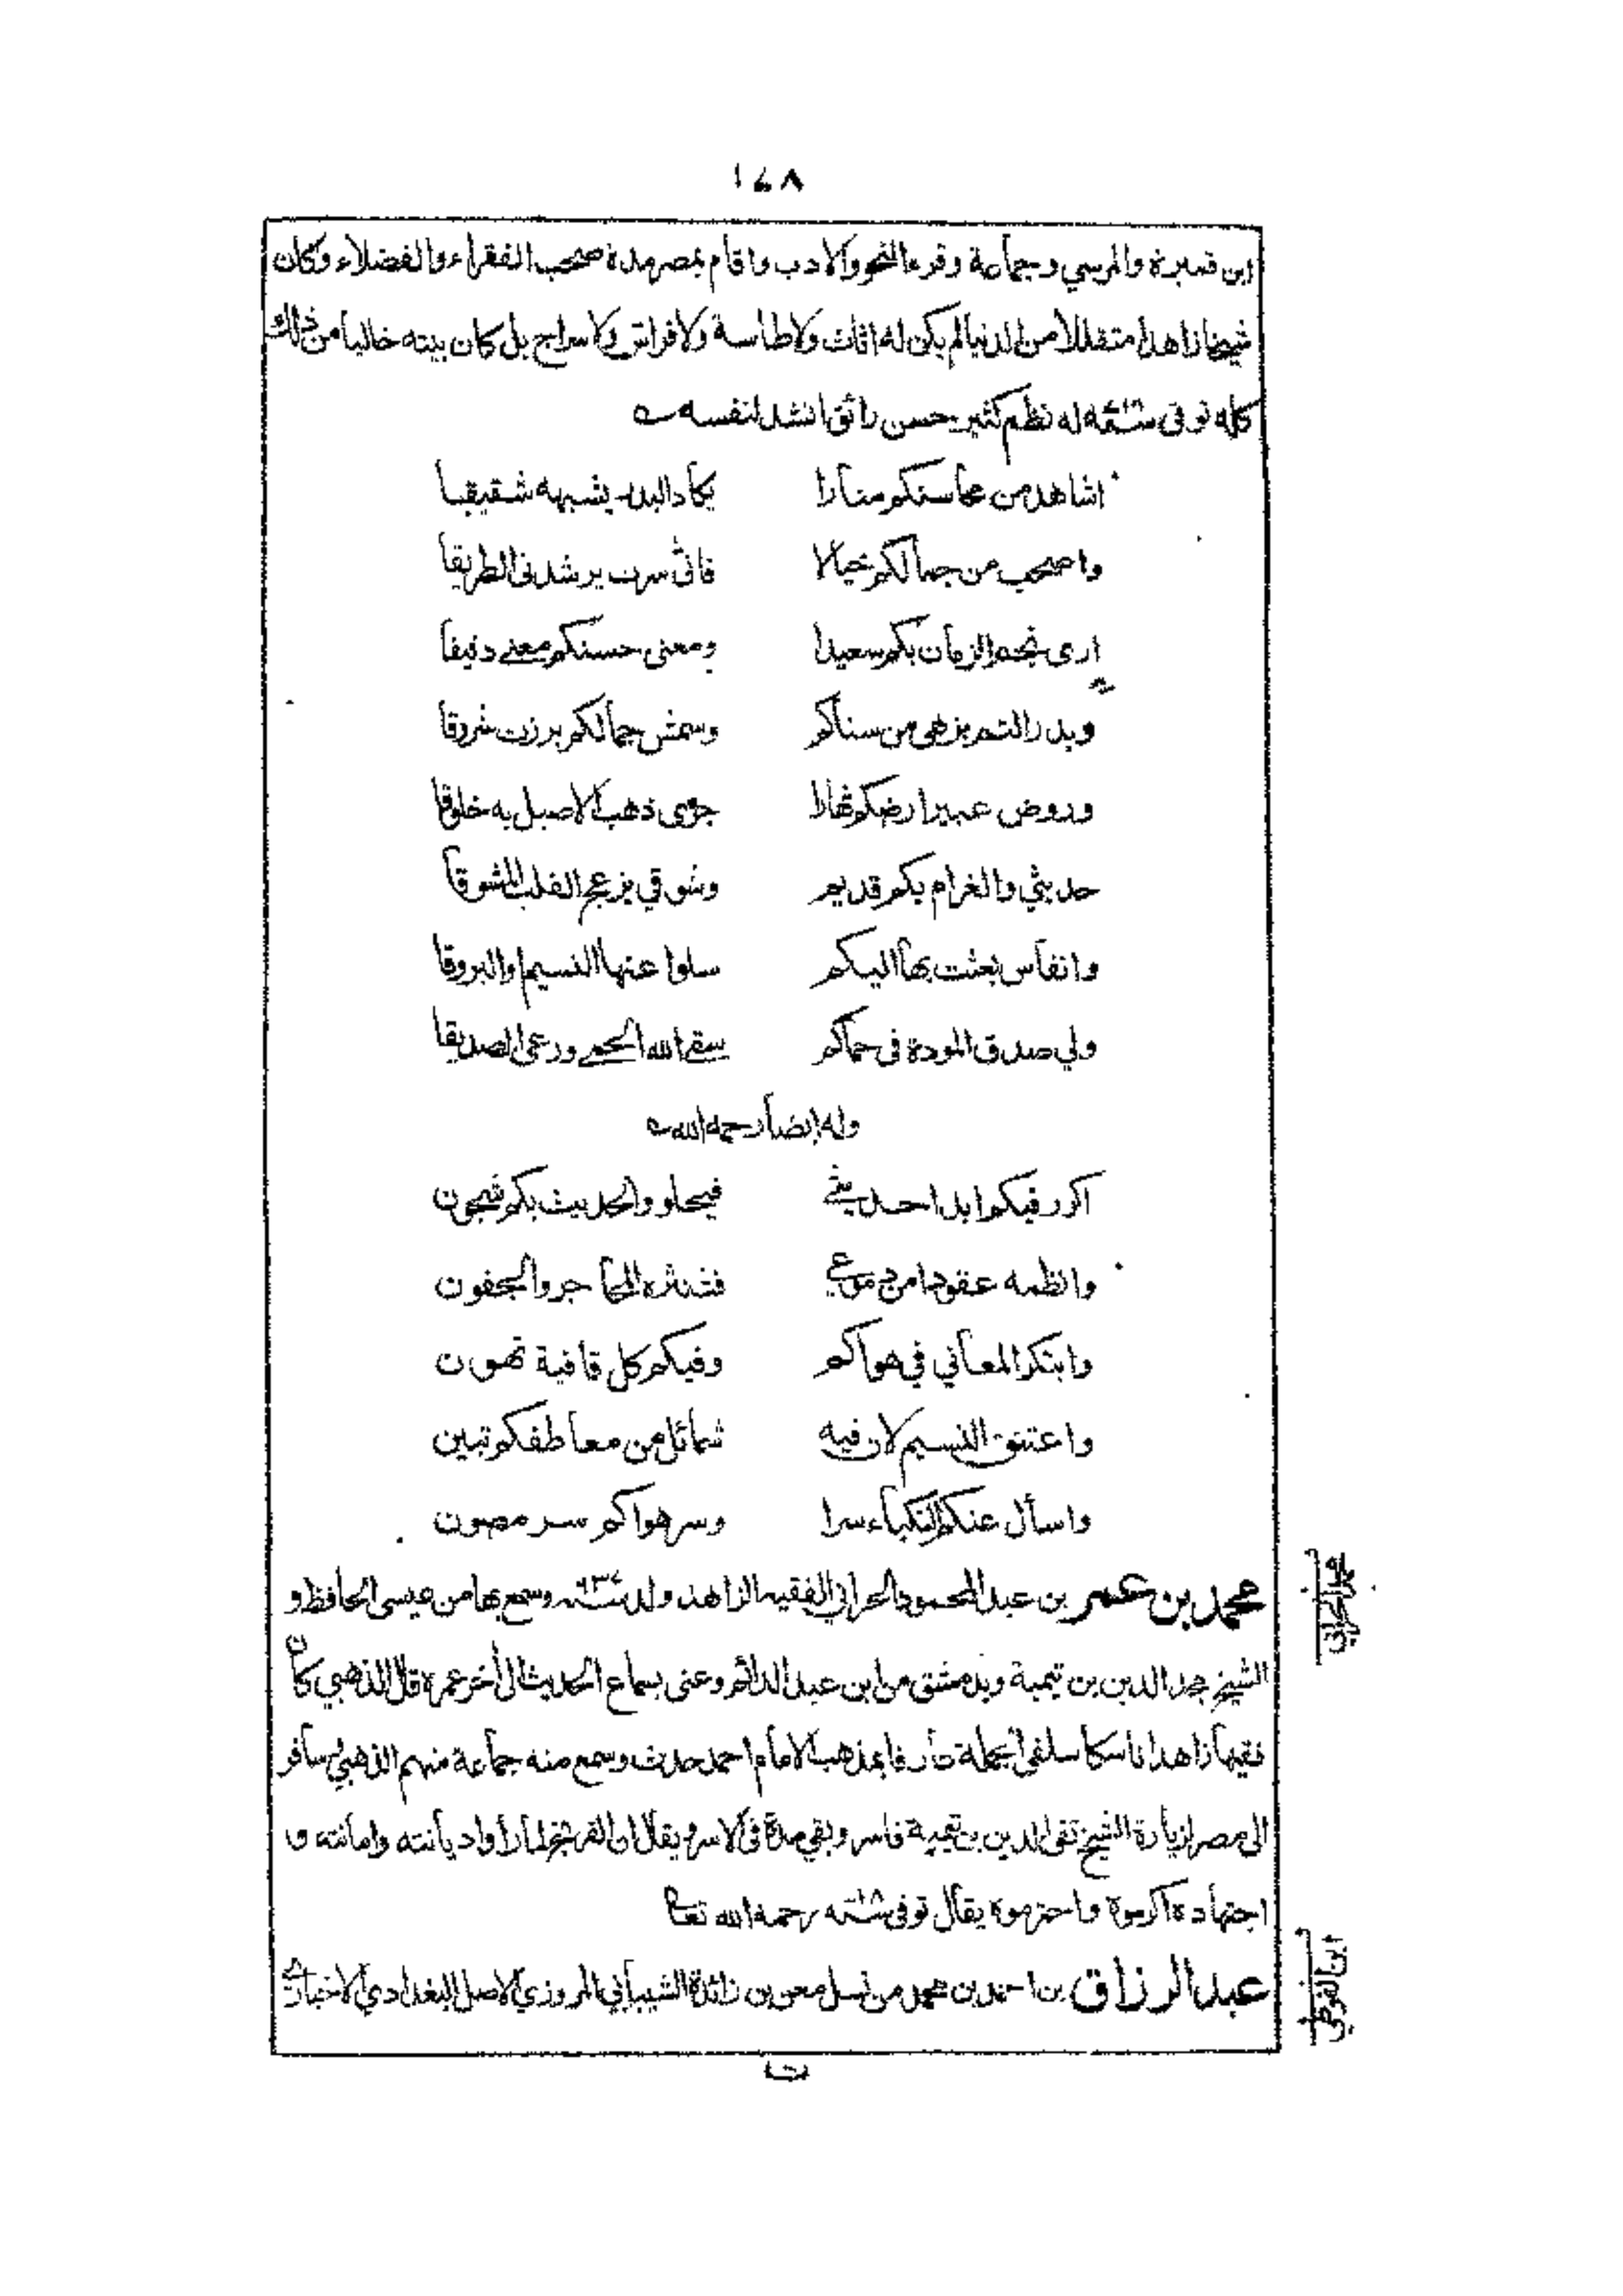 ١٤٨
ابن قميرة والمرسي وجماعة وقرء النحو والادب واقام بمصر مدة صحب الفقراء والفضلاء وكان
شيخا زاهدا متقللا من الدنيا لم يكن له اثاث ولا طاسة ولا فراش ولا سراج بل كان بيته خاليا من ذلك
كله توفى له نظم كثير حسن رائق انشد لنفسه
اشاهد من محاسنكم منارا يكاد البدر يشبهه شقيقا
واصحب من جمالكم خيالا فانى سرت يرشدنى الطريقا
ارى نجم الزمان بكم سعيدا ومعنى حسنكم معنے دقيقا
وبدر التم يزهى من سناكم وشمس جمالكم برزت شروقا
وروض عبير ارضكم نهارا جرى ذهب الاصيل به خلوقا
حديثي والغرام بكم قديم وشوقي يزعج القلب المشوقا
وانفاس بعثت بها اليكم سلوا عنها النسيم او البروقا
ولي صدق المودة فى حماكم سقے الله الحمے ورعى الصديقا
وله ايضا رحمه الله
اكرر فيكم ابدا حديثے فيحلو والحديث بكم شجون
وانظمه عقودا من دموعي فتنثره المحاجر والجفون
وابتكر المعاني في هواكم وفيكم كل قافية تهون
واعتنق النسيم لان فيه شمائل من معاطفكم تبين
واسأل عنكم النكباء سرا وسر هواكم سر مصون
محمد بن عمر بن عبد المحمود الحراني الفقيه الزاهد ولد وسمع بها من عيسى الحافظ و
الشيخ مجد الدين بن تيمية وبدمشق من ابن عبد الدائم وعنى بسماع الحديث الى أخر عمره قال الذهبي كان
فقيها زاهدا ناسكا سلفى الجملة عارفا بمذهب الامام احمد حدث وسمع منه جماعة منهم الذهبي وسافر
الى مصر لزيارة الشيخ تقى الدين بن تيمية فاسر وبقي مدة فى الاسر ويقال ان الفرنج لما رأوا ديانته وامانته و
اجتهاده اكرموه واحترموه يقال توفى رحمه الله تعالى
عبد الرزاق بن احمد بن محمد من نسل معن بن زائدة الشيباني المروزي الاصل البغدادي الاخباري
ابن الفوطي